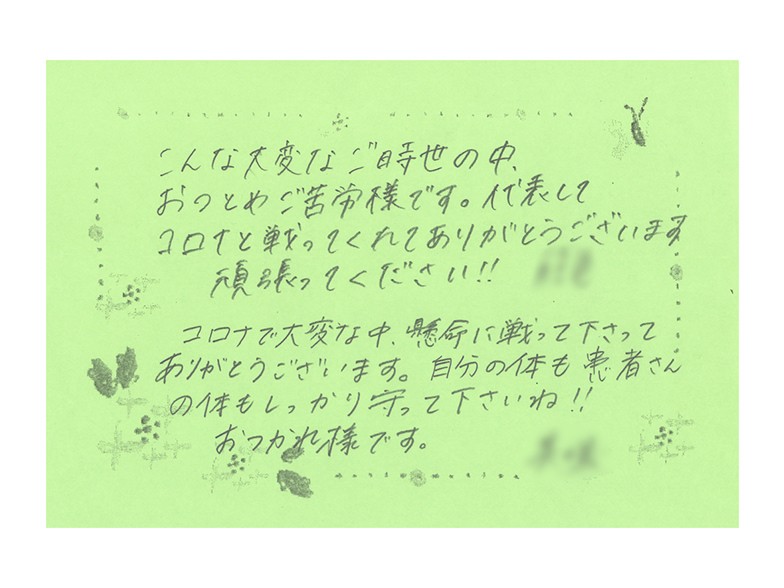 こんな大変なご時世の中、
おつとめご苦労様です。代表して
コロナと戦ってくれてありがとうございます
頑張ってください!!
コロナで大変な中、懸命に戦って下さって
ありがとうございます。自分の体も患者さん
の体もしっかり守って下さいね!!
おつかれ様です。